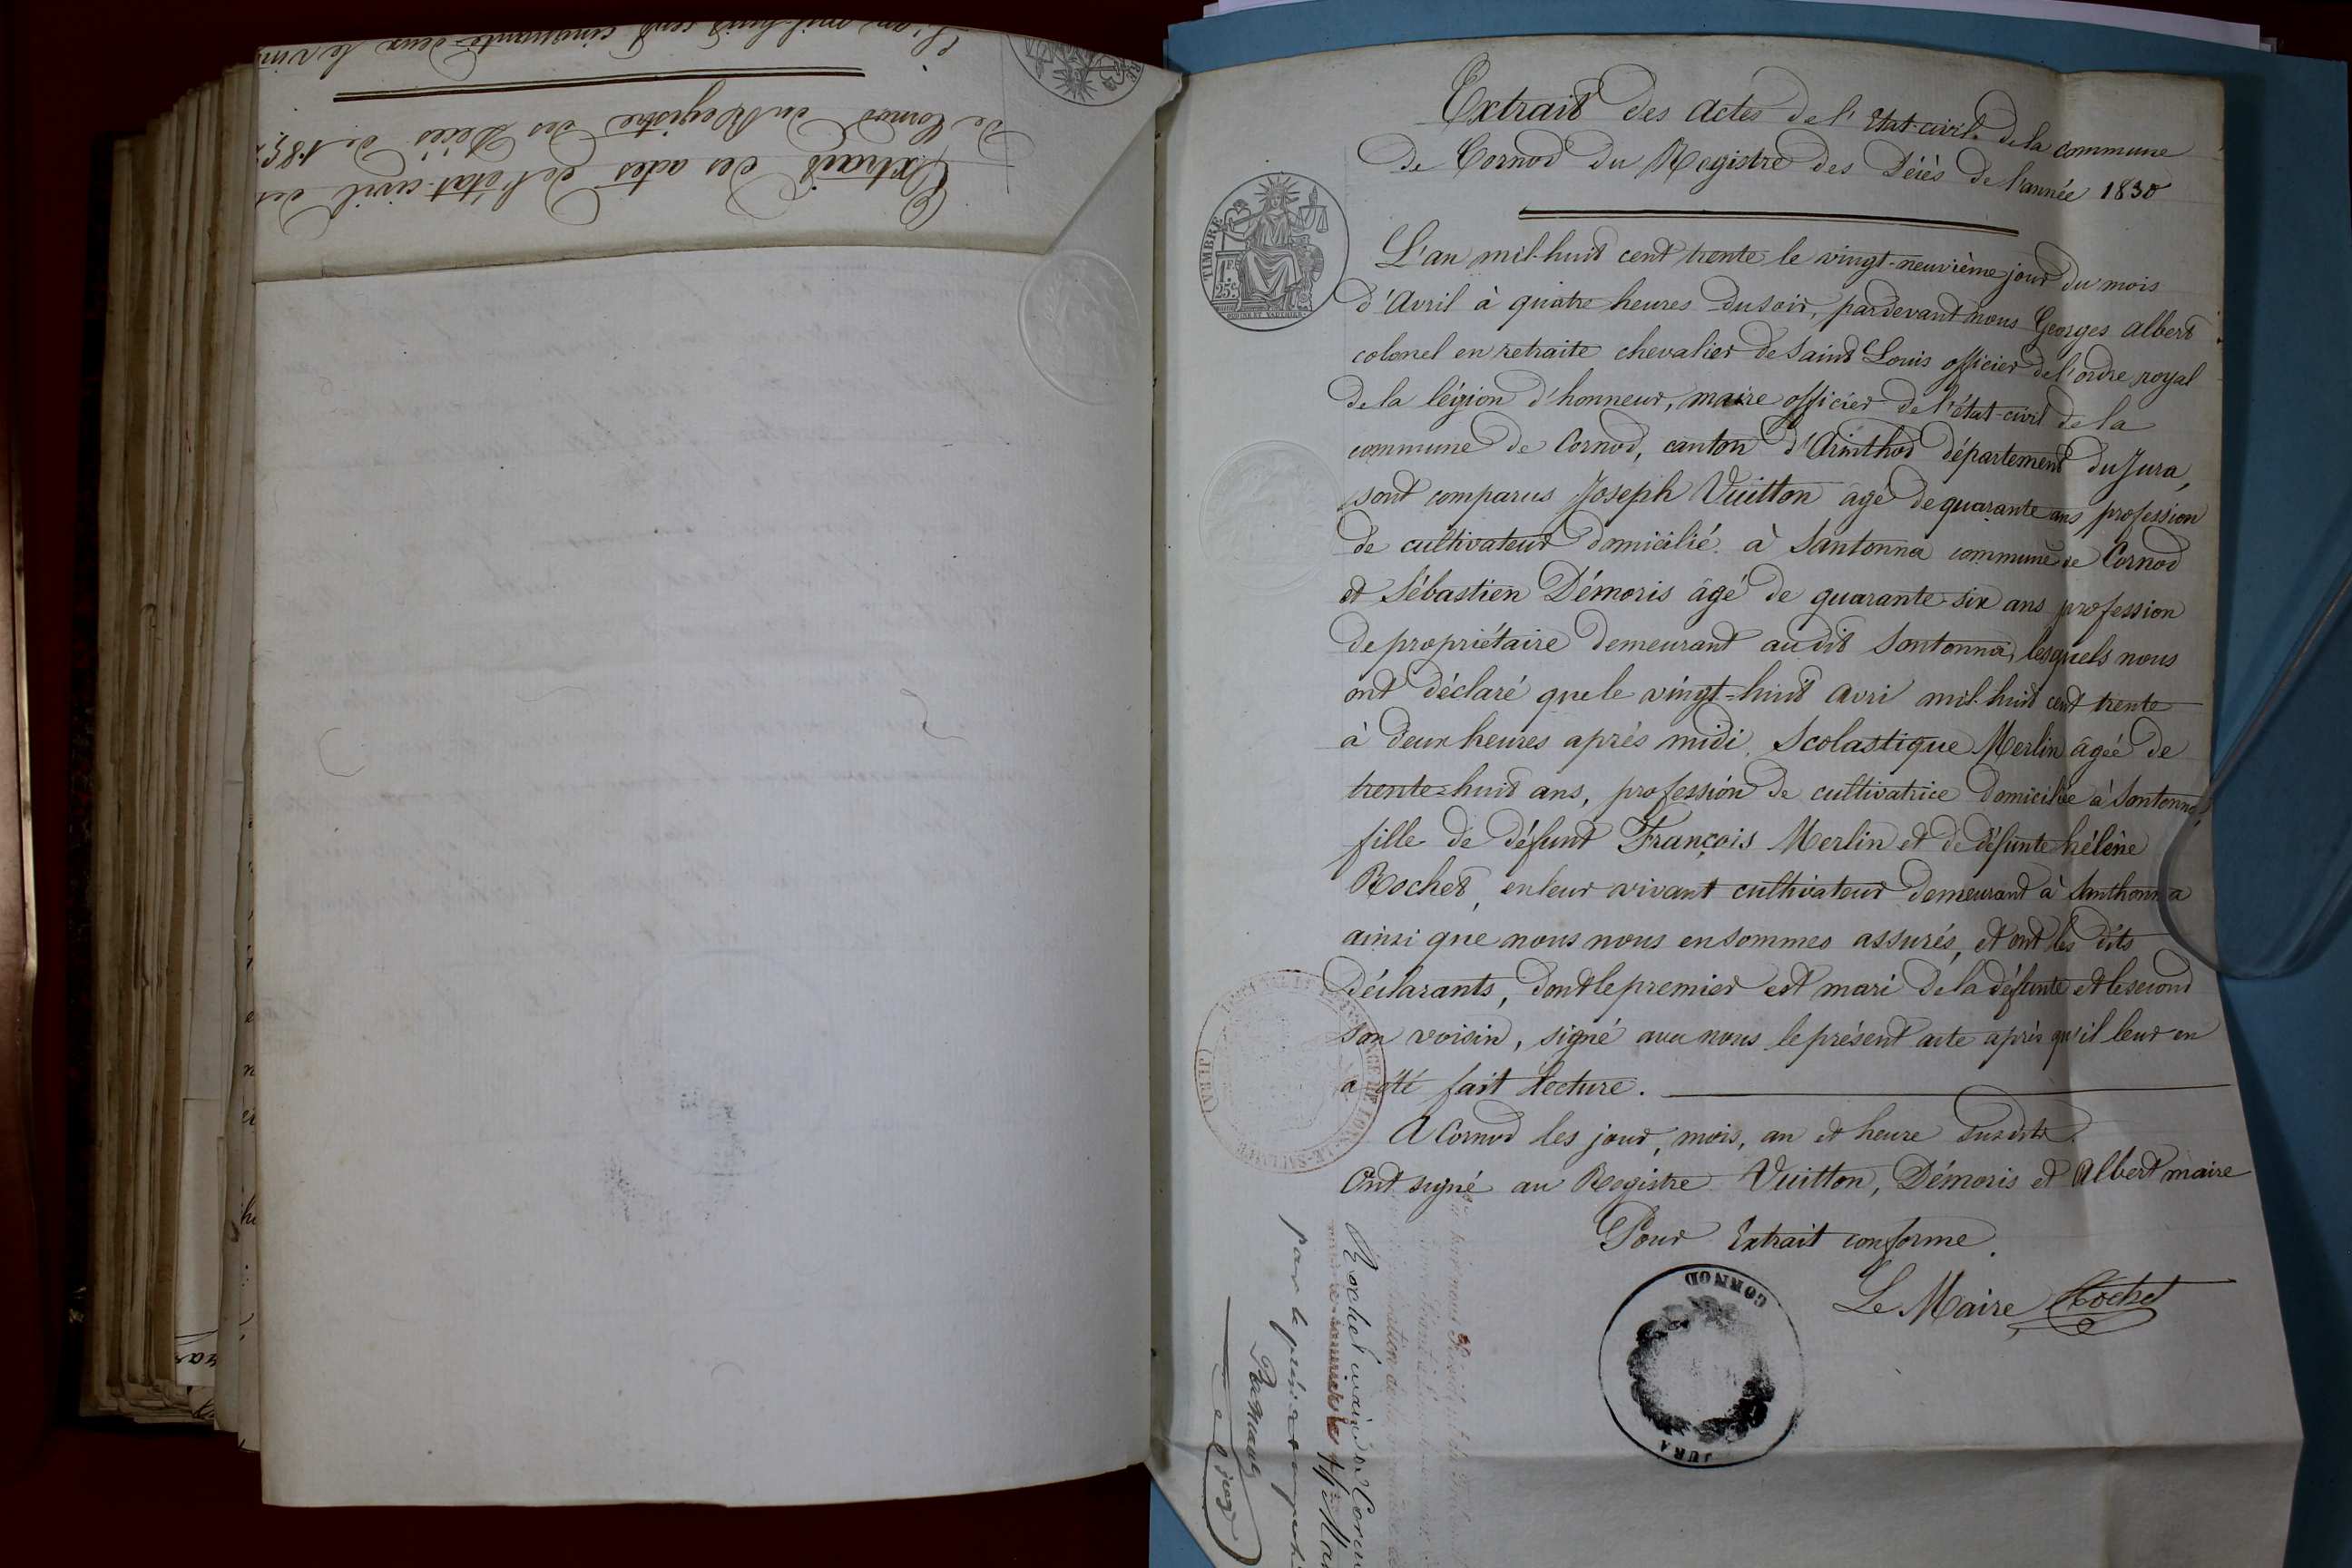 L'an mil-huit cent cinquante-deux le
Extrait des actes de l'état-civil des
de Cornod du Registre des Décès de 185
Extrait des Actes de l'Etat-civil de la commune
de Cornod du Registre des Décès de l'année 1830
TIMBRE
1 FR
25 C
L'an mil-huit cent trente le vingt-neuvième jour du mois
d'Avril à quatre heures du soir, pardevant nous Georges Albert
colonel en retraite chevalier de Saint Louis officier de l'ordre royal
de la légion d'honneur, maire officier de l'état-civil de la
commune de Cornod, canton d'Arinthod département du Jura,
sont comparus Joseph Vuitton âgé de quarante ans profession
de cultivateur domicilié à Santonna commune de Cornod
et Sébastien Démoris âgé de quarante-six ans profession
de propriétaire demeurant audit Santonna, lesquels nous
ont déclaré que le vingt-huit avri mil-huit cent trente
à deux heures après midi, Scolastique Merlin âgée de
trente-huit ans, profession de cultivatrice domiciliée à Santonna,
fille de défunt François Merlin et de défunte hélène
Rochet, en leur vivant cultivateur demeurant à Santhonna
ainsi que nous nous en sommes assurés, et ont les dits
déclarants, dont le premier est mari de la défunte et le second
son voisin, signé avec nous le présent acte après qu'il leur en
a été fait lecture.
A Cornod les jour, mois, an et heure susdits.
Ont signé au Registre Vuitton, Démoris et Albert maire
Pour Extrait conforme.
Le Maire Rochet
CORNOD
JURA
(JURA)
Rochet maire de Corn
par le